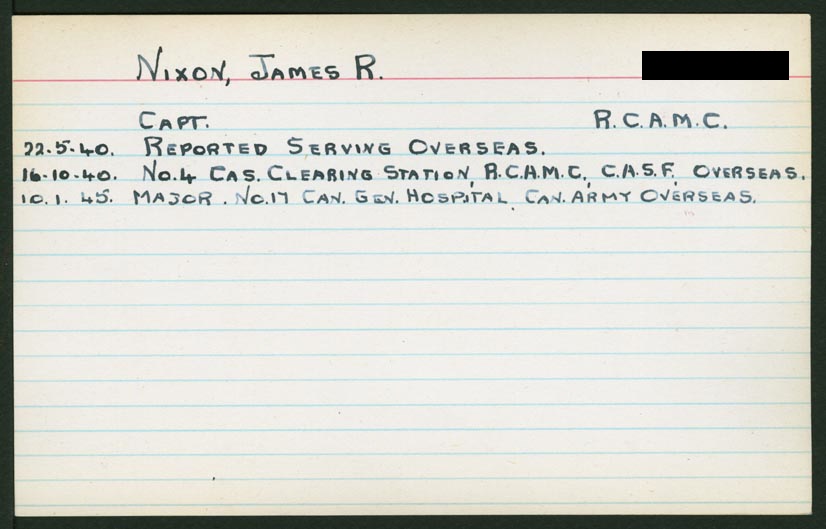 NIXON, JAMES R.
CAPT. R.C.A.M.C.
22.5.40. REPORTED SERVING OVERSEAS.
16.10.40. NO.4 CAS. CLEARING STATION, R.C.A.M.C., C.A.S.F., OVERSEAS.
10.1.45. MAJOR. NO.17 CAN. GEN. HOSPITAL, CAN. ARMY OVERSEAS.